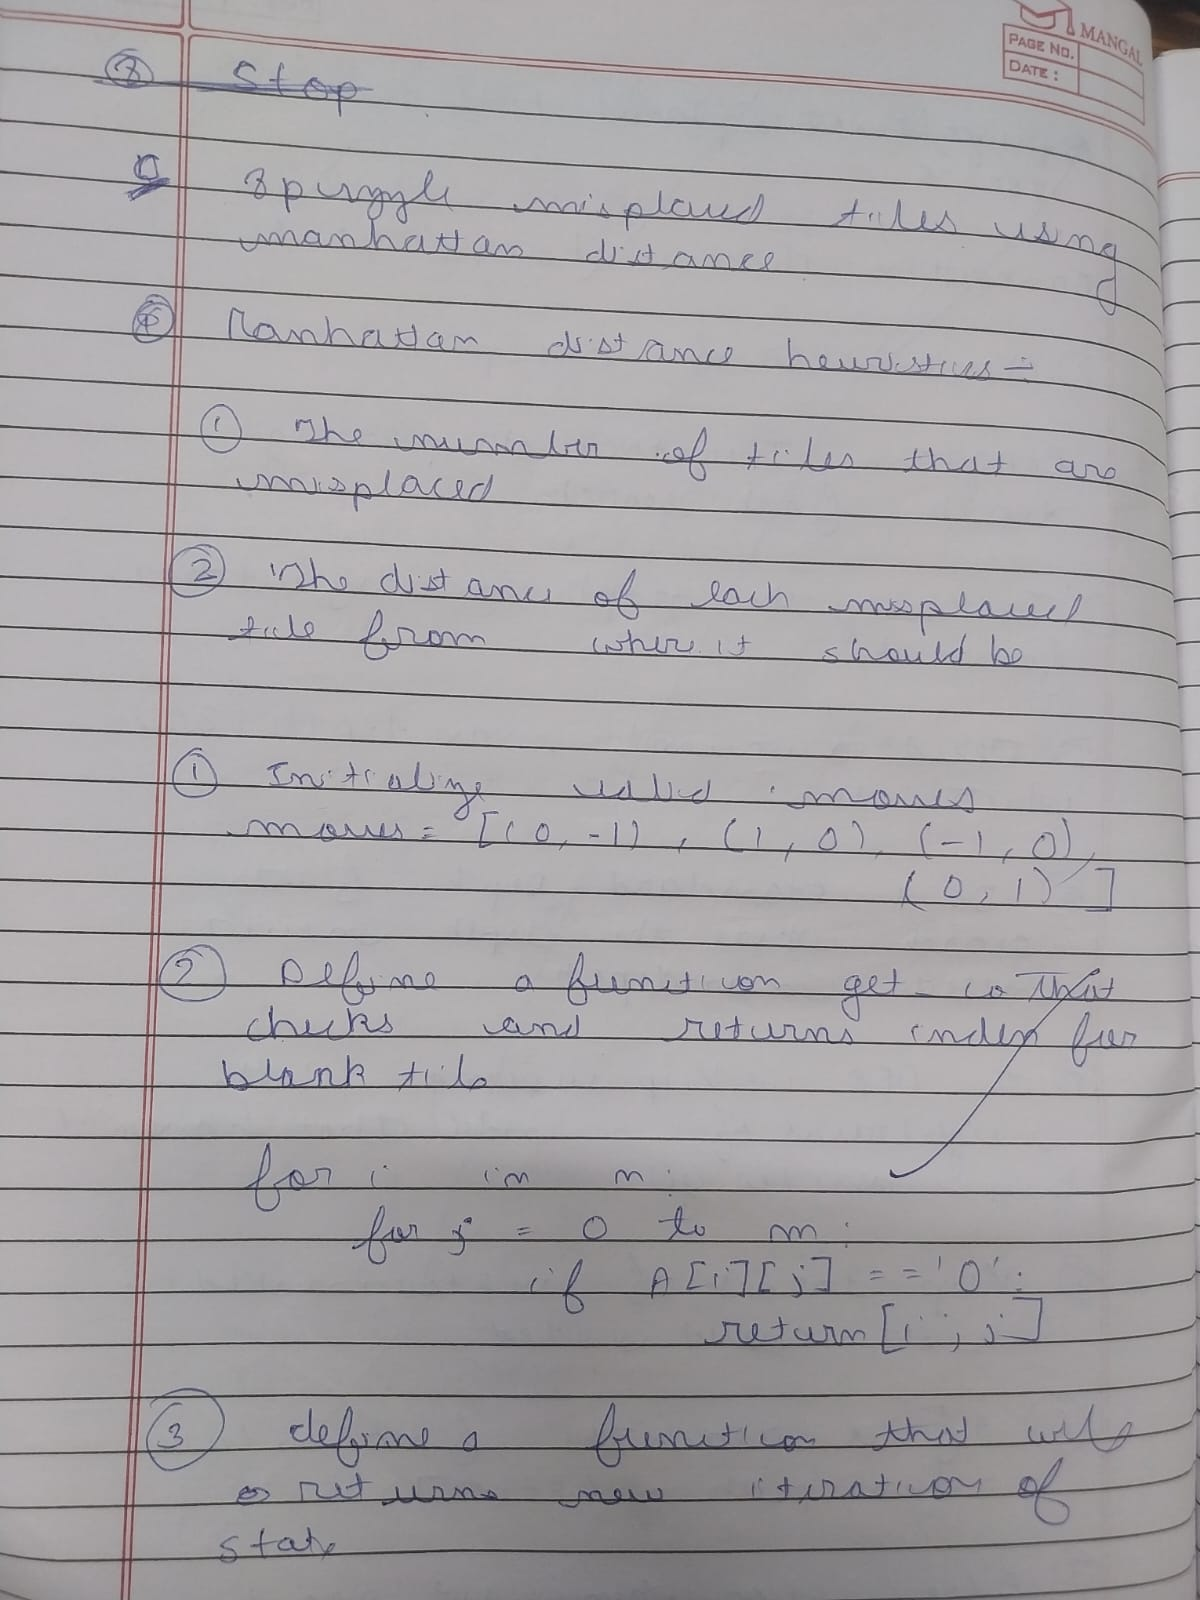 MANGAL
PAGE NO.
DATE :
⑧ Stop
Q 8 puzzle misplaced tiles using
manhattan distance
Manhattan distance heuristics =
① The number of tiles that are
misplaced
② The distance of each misplaced
tile from where it should be
① Initialize valid moves
moves = [(0, -1), (1, 0), (-1, 0),
(0, 1)]
② Define a function get that
checks and returns index for
blank tile
for i in n:
for j = 0 to m:
if A[i][j] == '0':
return [i, j]
③ define a function that will
returns new iteration of
state